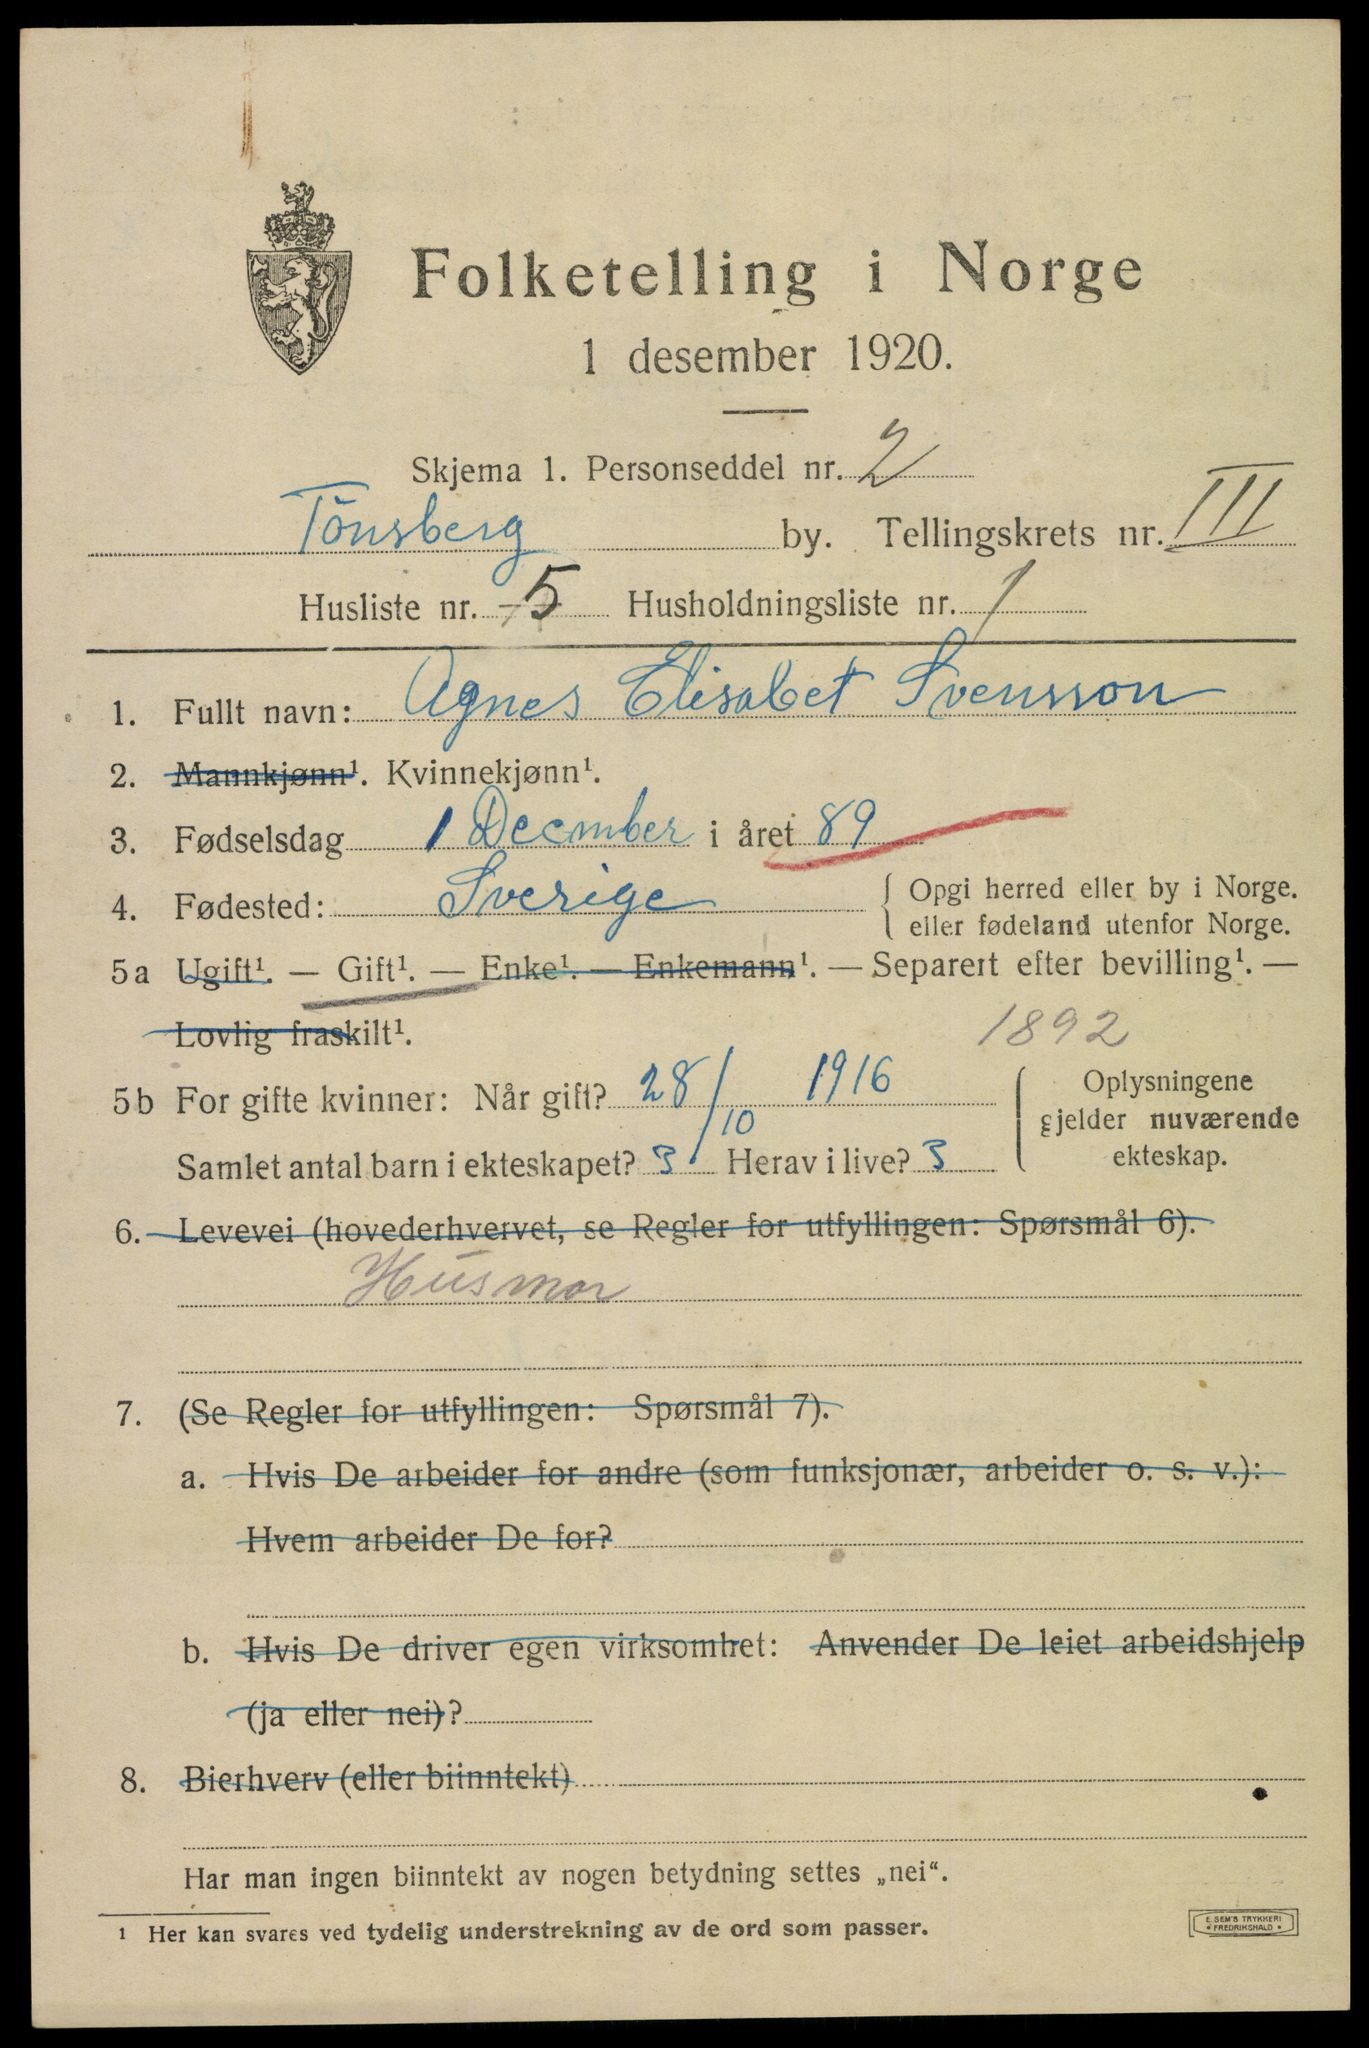 Folketelling i Norge
1 desember 1920.
Skjema 1. Personseddel nr. 2
Tönsberg by. Tellingskrets nr. III
Husliste nr. 5 Husholdningsliste nr. 1
1. Fullt navn: Agnes Elisabet Svensson
2. Mannkjønn¹. Kvinnekjønn¹.
3. Fødselsdag 1 December i året 89
4. Fødested: Sverige { Opgi herred eller by i Norge.
eller fødeland utenfor Norge.
5a Ugift¹. — Gift¹. — Enke¹. — Enkemann¹. — Separert efter bevilling¹. —
Lovlig fraskilt¹.
1892
5b For gifte kvinner: Når gift? 28/10 1916 Oplysningene
gjelder nuværende
Samlet antal barn i ekteskapet? 3 Herav i live? 3 ekteskap.
6. Levevei (hovederhvervet, se Regler for utfyllingen: Spørsmål 6).
Husmor
7. (Se Regler for utfyllingen: Spørsmål 7).
a. Hvis De arbeider for andre (som funksjonær, arbeider o. s. v.):
Hvem arbeider De for?
b. Hvis De driver egen virksomhet: Anvender De leiet arbeidshjelp
(ja eller nei)?
8. Bierhverv (eller biinntekt)
Har man ingen biinntekt av nogen betydning settes „nei“.
¹ Her kan svares ved tydelig understrekning av de ord som passer.
E. SEM'S TRYKKERI
• FREDRIKSHALD •